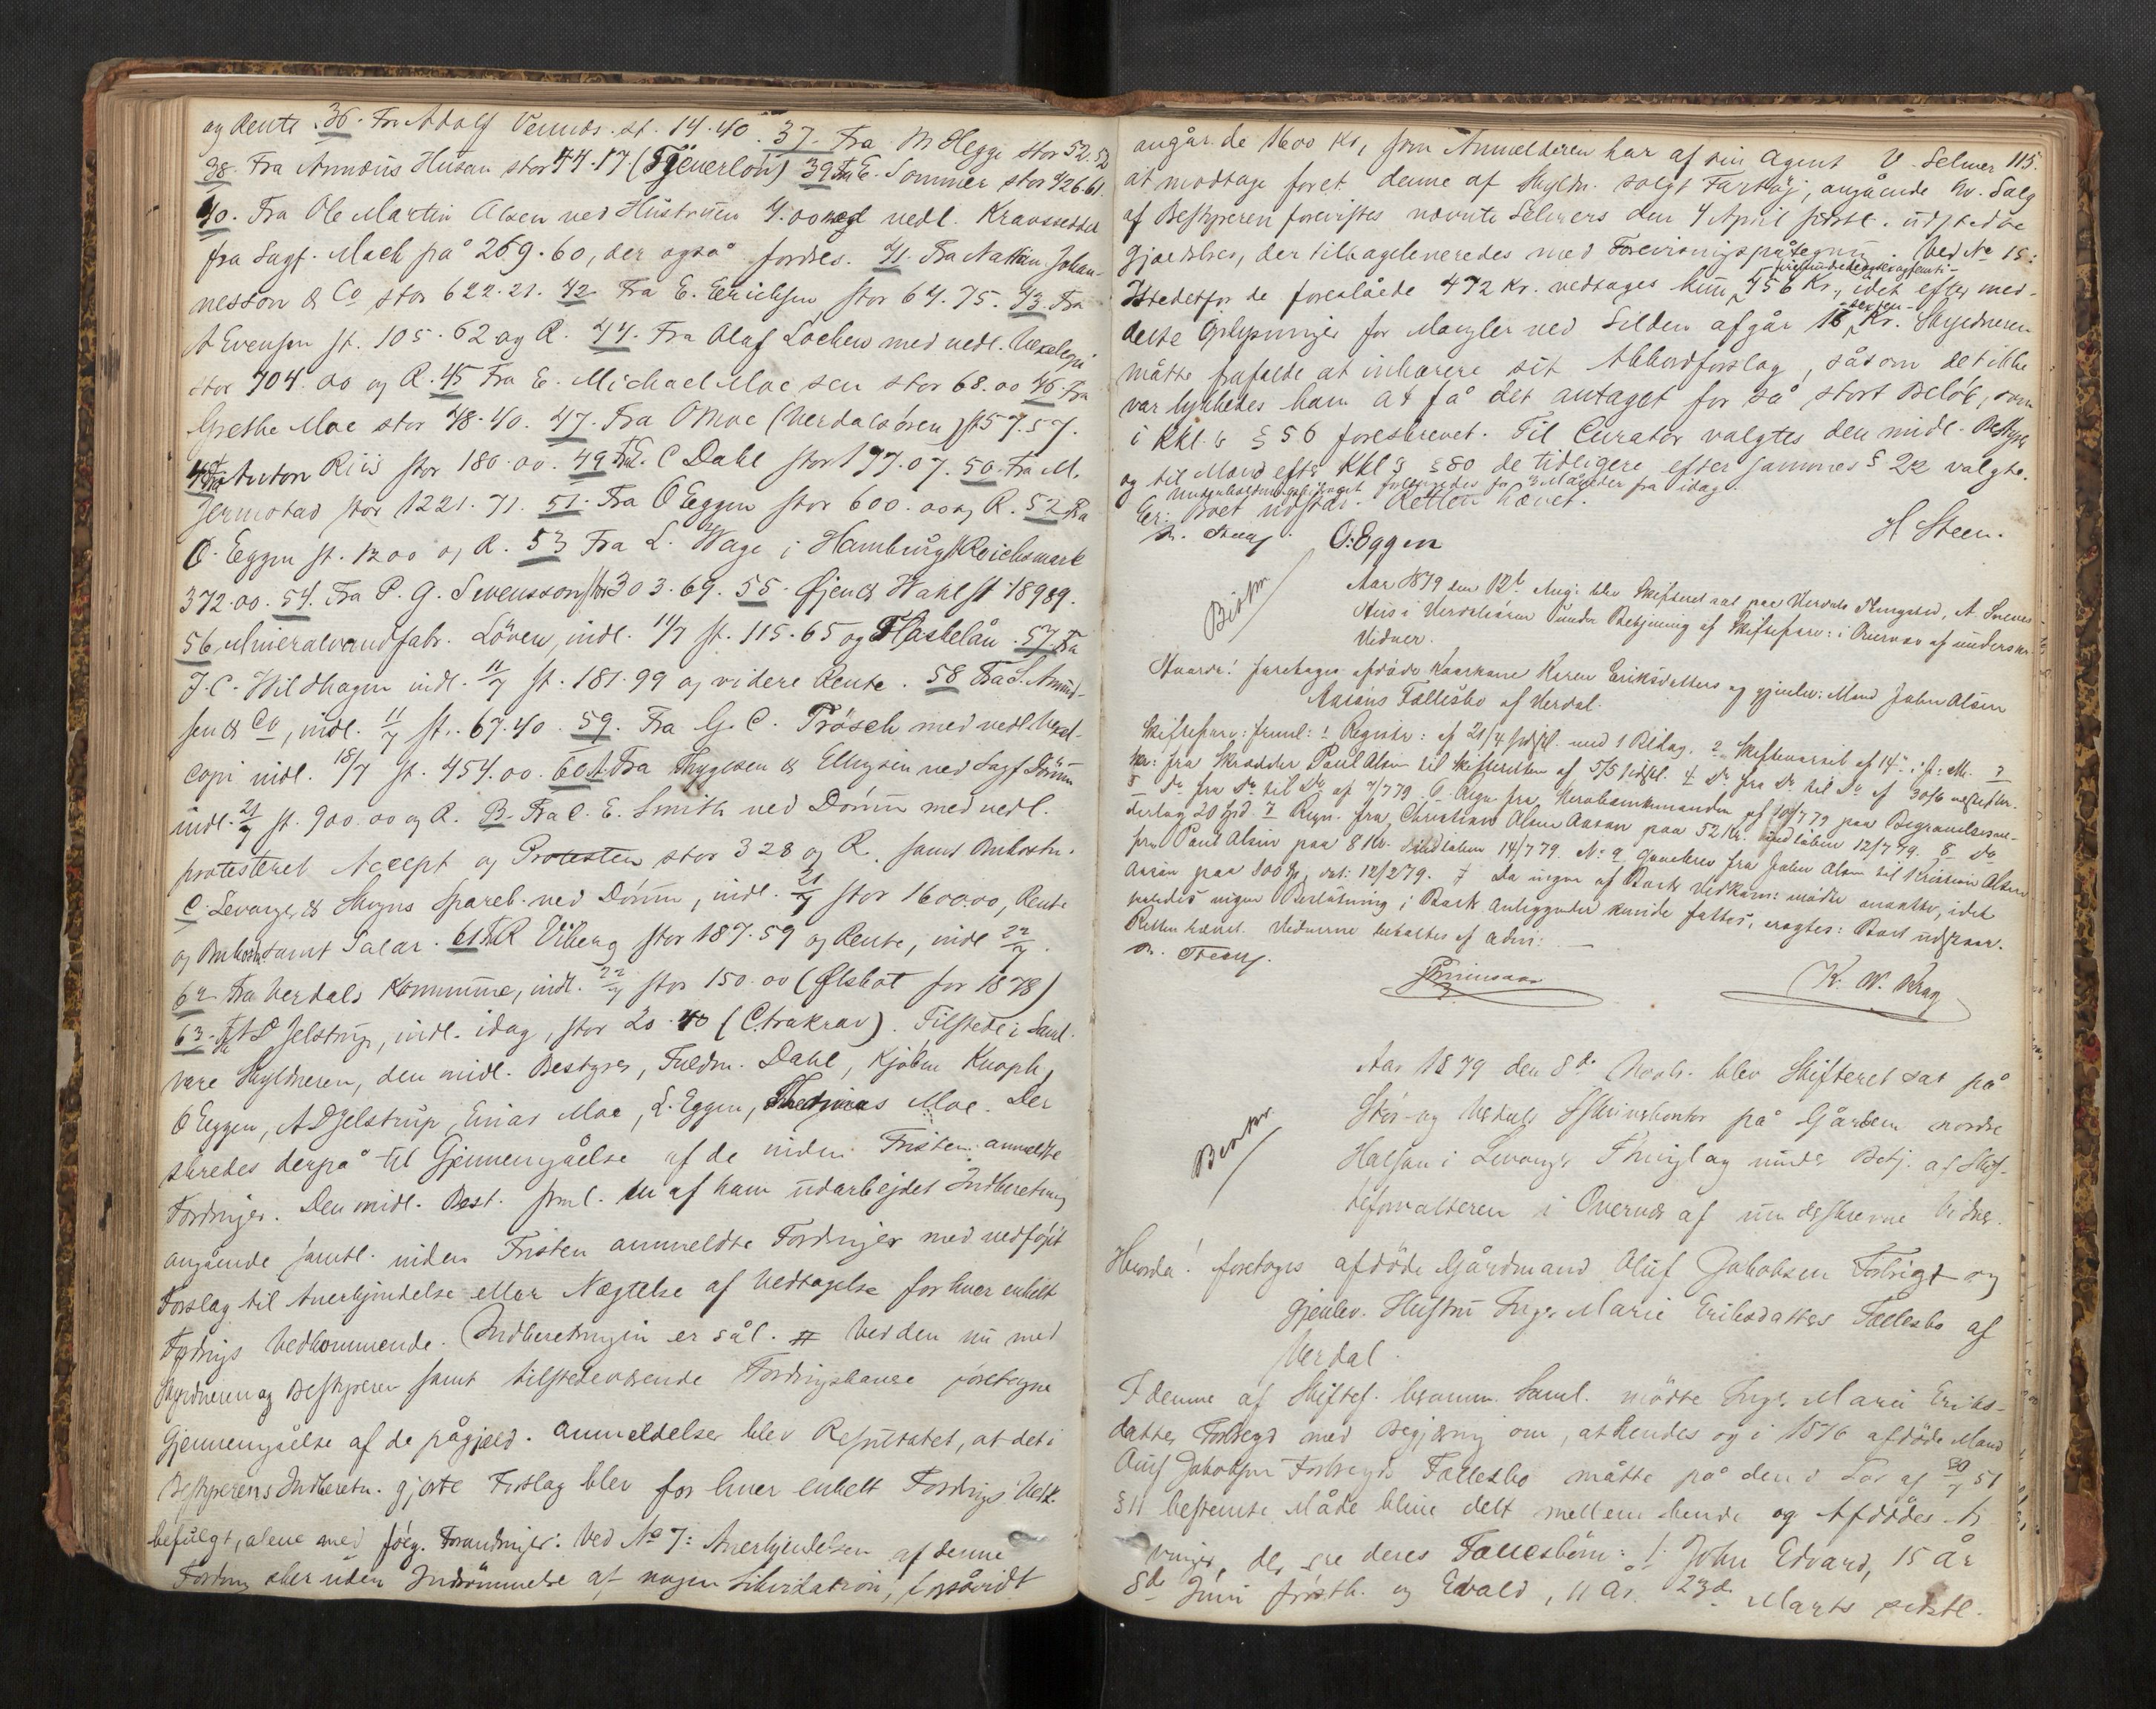 og Rente. 36. Fra Adolf Vennes. st. 14.40. 37. Fra M Hegge stor 52.50
38. Fra Annæus Husan stor 44.17 (Tjenerløn) 39 Fra E. Sommer stor 426.61.
40. Fra Ole Martin Olsen ved Hustruen 4.00 med vedl. Kravsseddel
fra Sagf. Mack på 269.60, der også fordres. 41. Fra Nathan Johan-
nesson & Co stor 622.21. 42 Fra E. Erichsen stor 64.75. 43. Fra
A Evensen st. 105.62 og R. 44. Fra Olaf Løchen med vedl. Vexelcopi
stor 404.00 og R. 45 Fra E. Michael Moe sen stor 68.00 46. Fra
Grethe Moe stor 48.40. 47. Fra O Moe (Verdalsøren) st 57.57.
48 Fra Anton Riis stor 180.00. 49 Fra C Dahl stor 197.07. 50. Fra M.
Jermstad stor 1221.71. 51. Fra O Eggen stor 600.00 og R. 52. Fra
O. Eggen st. 1200 og R. 53 Fra L. Wage i Hamburg st Reichsmark
372.00. 54. Fra P. G. Svensson stor 303.69. 55. Øjen & Wahl st 189.89.
56. Mineralvandfabr. Løven, indl. 11/7 st. 115.65 og Flaskelån. 57. Fra
J. C. Wildhagen indl. 11/7 st. 181.99 og videre Rente. 58 Fra S. Amund-
sen & Co, indl. 11/7 st. 67.40. 59. Fra G. C. Trösch med vedl. Vexel-
copi indl. 18/7 st. 454.00. 60 A. Fra Thygesen & Ellingsen ved Sagf Dømm
indl. 21/7 st. 900.00 og R. B. Fra C. E. Smith ved Dømm med vedl.
protesteret Accept og Protesten stor 328 og R. samt Omkostn.
C. Levanger & Skogns Spareb. ved Dømm, indl. 21/7 stor 1600.00, Rente
og Omkostn. samt Salar. 61 Fra R Viberg stor 187.59 og Rente, indl 22/7.
62. Fra Verdals Kommune, indl. 22/7 stor 150.00 (Ølskat for 1878)
63. Fra A D Jelstrup, indl. idag, stor 20.40 (Ctrakrav). Tilstede i Saml.
vare Skyldneren, den midl. Bestyrer, Fuldm. Dahl, Kjøbm Knoph,
O Eggen, A D Jelstrup, Einar Moe, L. Eggen, Moe. Der
skredes derpå til Gjennemgåelse af de inden Fristen anmeldte
Fordringer. Den midl. Best. freml. en af ham udarbejdet Indberetning
angående samtl. inden Fristen anmeldte Fordringer med vedføjet
Forslag til Anerkjendelse eller Nægtelse af Vedtagelse for hver enkelt
Fordrings Vedkommende. Indberetningen er sål. # Ved den nu med
Skyldneren og Bestyreren samt tilstedeværende Fordringshavere foretagne
Gjennemgåelse af de pågjæld. Anmeldelser blev Resultatet, at det i
Bestyrerens Indberetn. gjorte Forslag blev for hver enkelt Fordrings Vedk.
befulgt, alene med følg. Forandringer: Ved No 7: Anerkjendelsen af denne
Fordring sker uden Indrømmelse af nogen Likvidation, forsåvidt
115.
angår de 1600 Kr, som Anmelderen har af sin Agent V. Selmer
at modtage foret denne af Skyldn. solgt Fartøj, angående hv. Salg
af Bestyreren forevistes nævnte Selmers den 4 April sidstl. udstedte
Gjældsbrev, der tilbageleveredes med Forevisningspåtegning. Ved No 15:
Istedetfor de foreslåede 472 Kr. vedtages kun 456 Kr, idet efter med-
firehundredeogsexogfemti-
delte Oplysninger for Mangler ved Silden afgår 16 Kr. Skyldneren
-sexten-
måtte frafalde at inhærere sit Akkordforslag, såsom det ikke
var lykkedes ham at få det antaget for så stort Beløb, som
i Kkl. § 56 foreskrevet. Til Curator valgtes den midl. Bestyr
og til Mænd efter Kkl § 80 de tidligere efter sammes § 22 valgte.
Underholdningsbidraget forlængedes for 3 Måneder fra idag.
Er: Boet udstår. Retten hævet.
O. Eggen
H Steen.
Bistpr
Aar 1879 den 12te Aug: blev Skifteret sat paa Verdals Thingsted, A. Svenes
Huus i Verdalsøren under Betjening af Skifteforv: i Overvær af underskr.
Vidner.
Hvorda! foretoges afdøde Kaarkone Karen Eriksdatters og gjenlev: Mand John Olsen
Aasens Fællesbo af Verdal.
Skifteforv: freml: 1 Registr: af 21/4 sidstl. med 1 Bilag. 2 Skiftevarsel af 14 3
Skr: fra Skrædder Paul Olsen til Skifteretten af 5/5 sidstl. 4 Do fra Do til Do af 30/6
5 Do fra Do til Do af 4/7 79. 6. Regn. fra paa Begravelsesun-
derlag 20 Spd. 7 Regn. fra Christian Olsen Aasan paa 52 Kr. indløben 12/7 79. 8 Do
fra Paul Olsen paa 8 Kr. indløben 14/7 79. No 9 Gavebrev fra John Olsen til Olsen
Aasan paa 800 Kr, dat: 12/2 79. Da ingen af Boets Vedkomm: mødte ansattes, idet
saaledes ingen Beslutning i Boets Anliggender kunde fattes, eragtes: Boet udstaar.
Retten hævet. Vidnerne betaltes af Adm:
K. W. Krag
Bistpr
Aar 1879 den 8de Novbr. blev Skifteret sat på
Stør- og Verdals Sskriverkontor på Gården nordre
Halsan i Levanger Thinglag under Betj. af Skif-
teforvalteren i Overvær af underskrevne Vidner.
Hvorda! foretoges afdøde Gårdmand Oluf Jakobsen Forbregd og
gjenlev. Hustru Inger Marie Eriksdatters Fællesbo af
Verdal.
I denne af Skiftef. beramm. Saml. mødte Inger Marie Eriks-
datter Forbregd med Begjæring om, at hendes og i 1876 afdøde Mand
Oluf Jakobsen Forbregds Fællesbo måtte på den i Lov af 30/7 51
§ 11 bestemte Måde blive delt mellem hende og Afdødes Ar-
vinger, der ere deres Fællesbørn: 1. John Edvard, 15 År
8de Juni førstk. og Edvald, 11 År. 23de Marts sidstl.